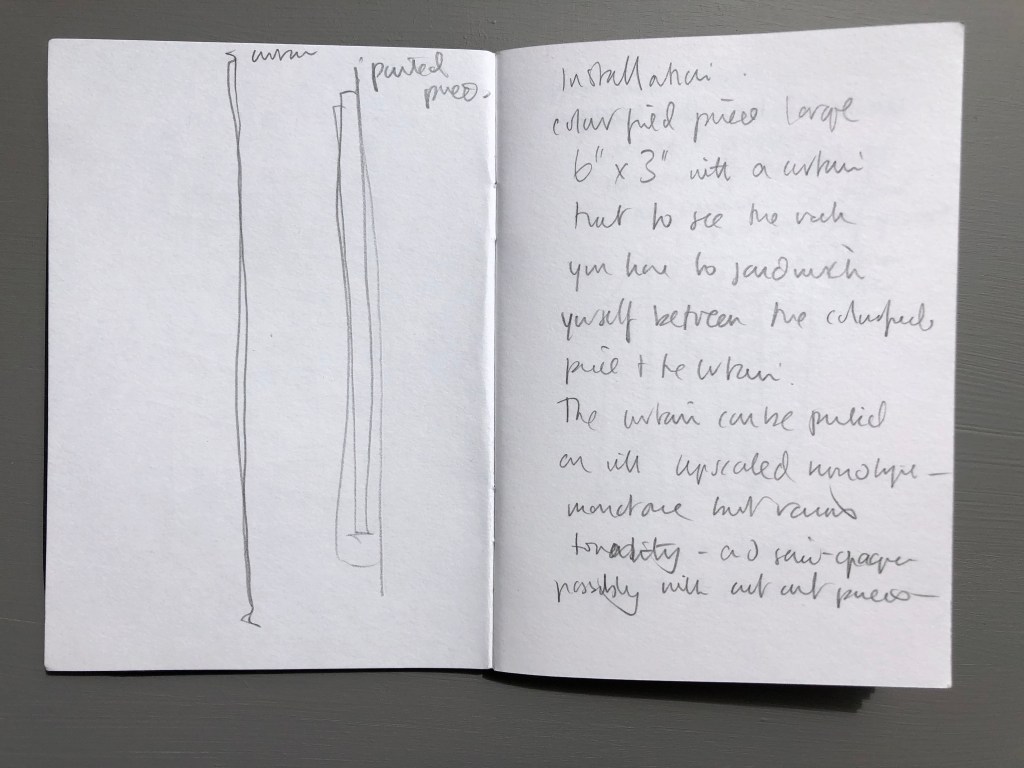 curtain
painted
piece.
Installation.
colourfield piece large
6" x 3" with a curtain
that to see the work
you have to sandwich
yourself between the colourfield
piece + the curtain.
The curtain can be printed
on with upscaled monotype —
monotone but various
tonality - and semi-opaque
possibly with cut out pieces —